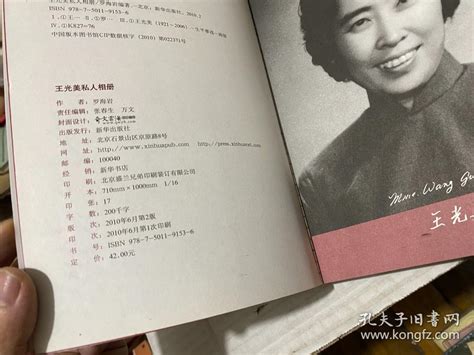 王光美私人相册/罗海岩编著.—北京:新华出版社,2010.2
ISBN 978-7-5011-9153-6
Ⅰ.①王… Ⅱ.①罗… Ⅲ.①王光美(1921~2006)—生平事迹—画册
Ⅳ.①K827=76
中国版本图书馆CIP数据核字(2010)第022371号
王光美私人相册
作 者:罗海岩
责任编辑:张春生 万文
封面设计:
出版发行:新华出版社
地 址:北京石景山区京原路8号
网 址:http://www.xinhuapub.com http://press.xinhuanet.com
邮 编:100040
经 销:新华书店
印 刷:北京盛兰兄弟印刷装订有限公司
开 本:710mm×1000mm 1/16
印 张:17
字 数:200千字
版 次:2010年6月第2版
印 次:2010年6月第1次印刷
书 号:ISBN 978-7-5011-9153-6
定 价:42.00元
Mme. Wang Gu
王光
孔夫子旧书网
www.kongfz.com